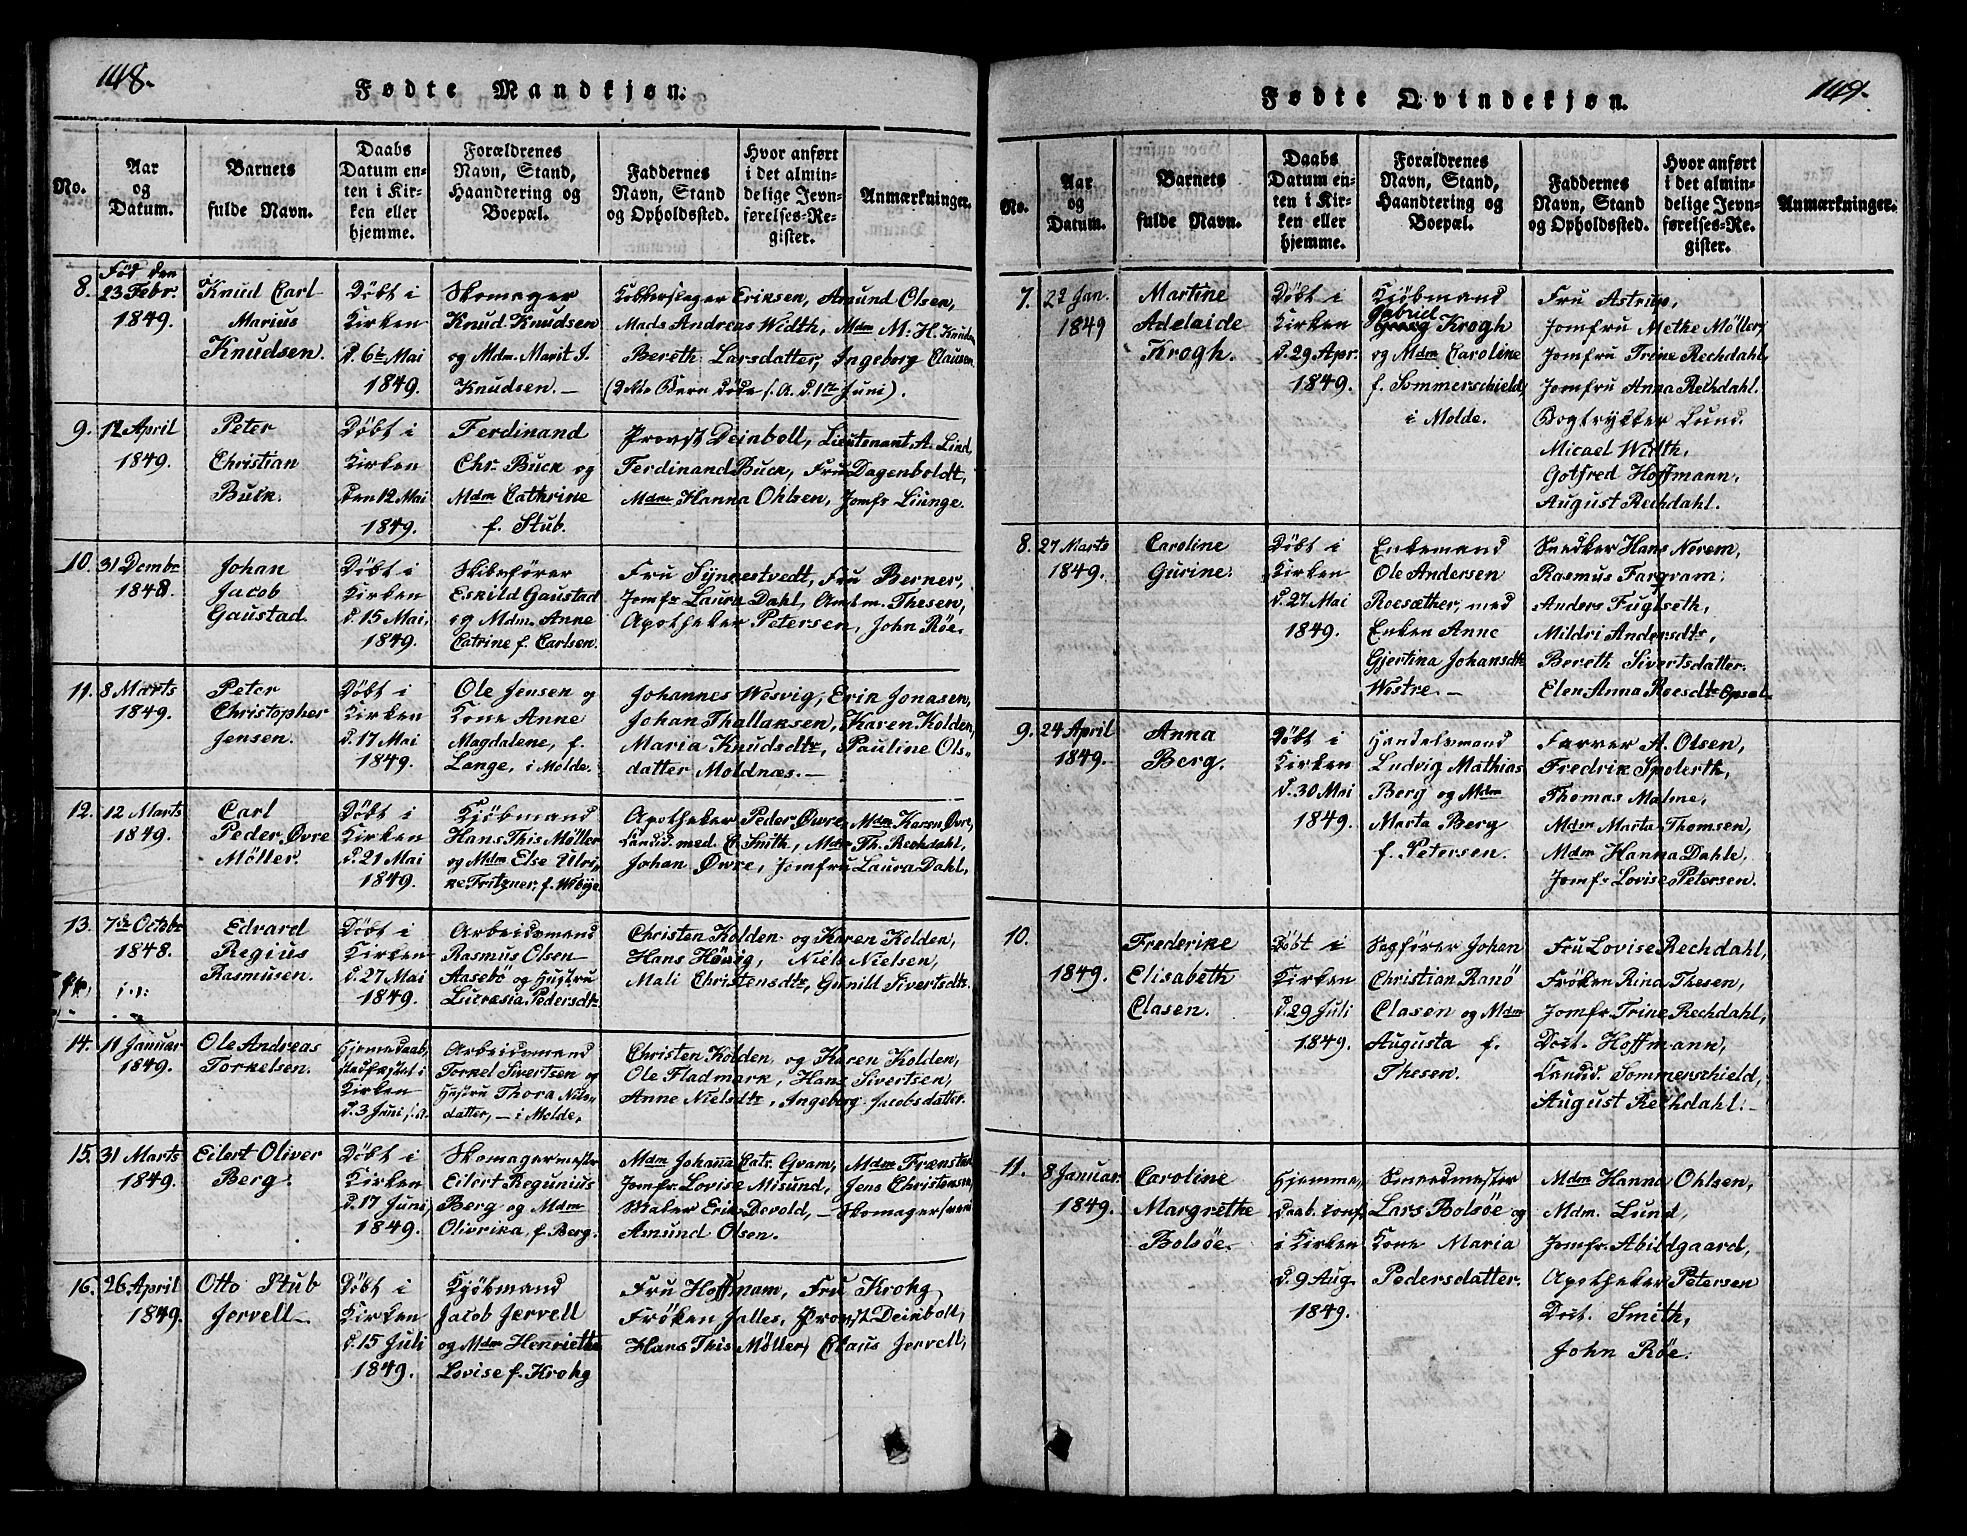 148.
Fødte Mandkjøn.
No.
Aar
og
Datum.
Barnets
fulde Navn.
Daabs
Datum en-
ten i Kir-
ken eller
hjemme.
Forældrenes
Navn, Stand,
Haandtering og
Boepæl.
Faddernes
Navn, Stand
og Opholdssted.
Hvor anført
i det almin-
delige Jevn-
førelses-Re-
gister.
Anmærkninger.
8.
Fød den
23 Febr.
1849.
Knud Carl
Marius
Knudsen.
Døbt i
Kirken
d. 6te Mai
1849.
Skomager
Knud Knudsen
og Mdm. Marit J.
Knudsen. —
Kobberslager Eriksen, Amund Olsen,
Mads Andreas Width, Mdm M. H. Knudsen
Bereth Larsdatter, Ingeborg Clausen
(dette Barn døde s. A. d. 1te Juni).
9.
12 April
1849.
Peter
Christian
Buck.
Døbt i
Kirken
den 12 Mai
1849.
Ferdinand
Chr. Buck og
Mdm Cathrine
f. Stub.
Provst Deinboll, Lieutenant A. Lind,
Ferdinand Buck, Fru Dagenboldt,
Mdm Hanna Ohlsen, Jomfr Liunge.
10.
31 Dembr
1848.
Johan
Jacob
Gaustad.
Døbt i
Kirken
d. 15 Mai,
1849.
Skibsfører
Eskild Gaustad
og Mdm. Anne
Catrine f. Carlsen.
Fru Synnestvedt, Fru Berner,
Jomfr Laura Dahl, Amtm. Thesen,
Apotheker Petersen, John Røe.
11.
8 Marts
1849.
Peter
Christopher
Jensen.
Døbt i
Kirken
d. 17 Mai
1849.
Ole Jensen og
Kone Anne
Magdalene, f.
Lange, i Molde.
Johannes Wosvig, Erik Jonasen,
Johan Thallaksen, Karen Kolden,
Maria Knudsdtr, Pauline Ols-
datter Moldnæs. —
12.
12 Marts
1849.
Carl
Peder Øvre
Møller.
Døbt i
Kirken
d. 21 Mai
1849.
Kjøbmand
Hans This Møller
og Mdm Else Ulri-
ke Fritzner, f. Wibye.
Apotheker Peder Øvre, Mdm Karen Øvre,
Candid. med. C. Smith, Mdm Th. Rechdahl,
Johan Øvre, Jomfru Laura Dahl,
13.
7de Octobr
1848.
Edvard
Regius
Rasmusen.
Døbt i
Kirken
d. 27 Mai
1849.
Arbeidsmand
Rasmus Olsen
Aasebö og Hustru
Lucresia Pedersdtr
Christen Kolden og Karen Kolden,
Hans Hövig, Niels Nielsen,
Mali Christensdtr, Gunild Sivertsdtr
14.
11 Januar
1849.
Ole Andreas
Torkelsen.
Hjemmedaab,
stadfæstet i
Kirken
d. 3 Juni s. A.
Arbeidsmand
Torkel Sivertsen og
Hustru Thora Nils-
datter, — i Molde,
Christen Kolden og Karen Kolden,
Ole Fladmark, Hans Sivertsen,
Anne Nielsdtr, Ingeborg Jacobsdatter.
15.
31 Marts
1849.
Eilert Oliver
Berg.
Døbt i
Kirken
d. 17 Juni
1849.
Skomagermester
Eilert Regunius
Berg og Mdm
Olivrika, f. Berg.
Mdm Johanna Cats. Gram, Mdm Frænstad
Jomfr Lovise Misund, Jens Christensen,
Maler Erik Devold, — Skomagersvend
Amund Olsen.
16.
26 April
1849.
Otto Stub
Jervell
Døbt i
Kirken
d. 15 Juli
1849.
Kjøbmand
Jacob Jervell
og Mdm Henriette
Lovise f. Krohg
Fru Hoffmann, Fru Krohg
Frøken Jalles, Provst Deinboll,
Hans This Møller, Claus Jervell,
149.
Fødte Qvindekjøn.
No.
Aar
og
Datum.
Barnets
fulde Navn.
Daabs
Datum en-
ten i Kir-
ken eller
hjemme.
Forældrenes
Navn, Stand,
Haandtering og
Boepæl.
Faddernes
Navn, Stand
og Opholdssted.
Hvor anført
i det almin-
delige Jevn-
førelses-Re-
gister.
Anmærkninger.
7.
22 Jan.
1849
Martine
Adelaide
Krogh.
Døbt i
Kirken
d. 29 Apr.
1849.
Kjöbmand
Gabriel
Krogh
og Mdm Caroline
f. Sommerschield,
i Molde.
Fru Astrup,
Jomfru Methe Møller,
Jomfru Trine Rechdahl,
Jomfru Anna Rechdahl.
Bogtrykker Lund.
Micael Width,
Gotfred Hoffmann,
August Rechdahl.
8.
27 Marts
1849.
Caroline
Gurine.
Døbt i
Kirken
d. 27 Mai
1849.
Enkemand
Ole Andersen
Roesæther, med
Enken Anne
Gjertina Johansdtr
Westre. —
Snedker Hans Nerem,
Rasmus Fargram,
Anders Fuglseth,
Mildri Andersdtr,
Bereth Sivertsdatter.
Elen Anna Roesdtr Opsal
9.
24 April
1849.
Anna
Berg.
Døbt i
Kirken
d. 30 Mai
1849.
Handelsmand
Ludvig Mathias
Berg og Mdm
Marta Berg
f. Petersen.
Farver A. Olsen,
Fredrik Spolerth,
Thomas Malme,
Mdm Marta Thomsen,
Mdm Hanna Dahle,
Jomfr Lovise Petersen.
10.
1849.
Frederike
Elisabeth
Clasen.
Døbt i
Kirken
d. 29 Juli
1849.
Sagfører Johan
Christian Ranö
Clasen og Mdm
Augusta f.
Thesen.
Fru Lovise Rechdahl,
Frøken Rina Thesen,
Jomfr Trine Rechdahl,
Doct. Hoffmann,
Candid. Sommerschield,
August Rechdahl. —
11.
8 Januar
1849.
Caroline
Margrethe
Bolsöe.
Hjemme-
daab. conf.
i Kirken
d. 9 Aug.
1849.
Smedmester
Lars Bolsöe og
Kone Maria
Pedersdatter.
Mdm Hanna Ohlsen,
Mdm. Lund,
Jomfr. Abildgaard,
Apotheker Petersen
Doct. Smith,
John Røe.